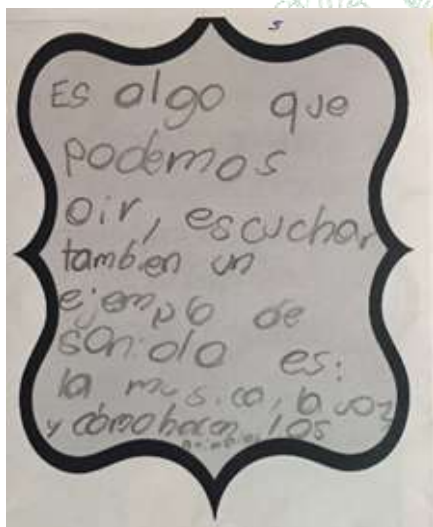 5
Es algo que
podemos
oir, escuchar
tambien un
ejemplo de
es:
la musica, la voz
y cómo hacen los
animales